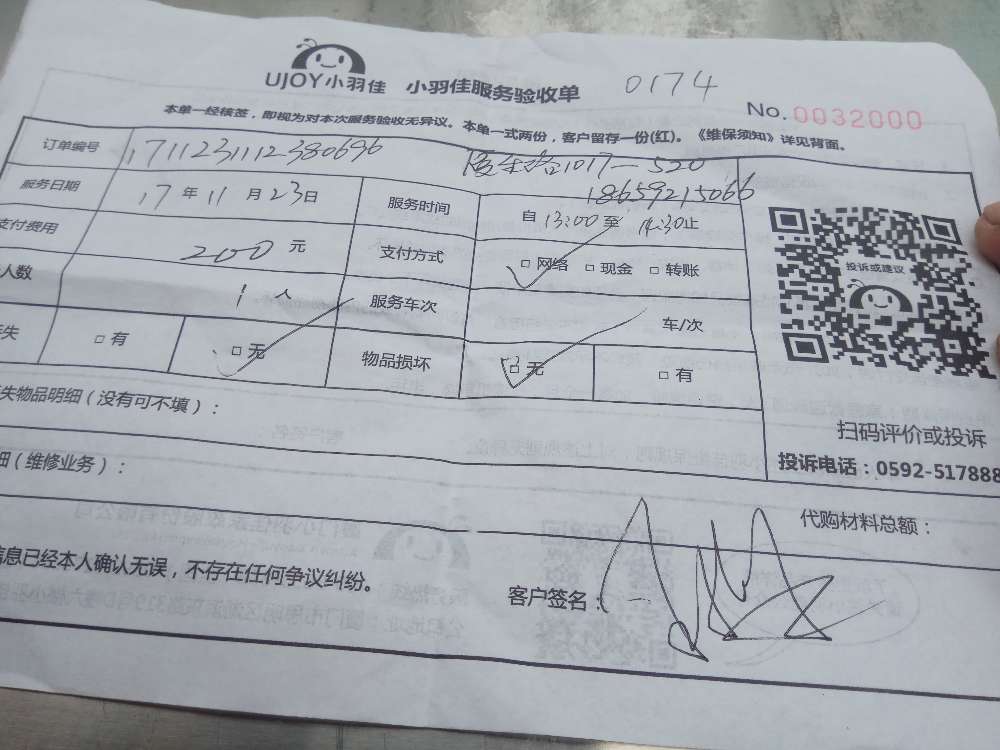 UJOY小羽佳 小羽佳服务验收单 0174
No.0032000
本单一经核签，即视为对本次服务验收无异议。本单一式两份，客户留存一份(红)。《维保须知》详见背面。
订单编号 1711231112380696 1017-520
18659215066
服务日期 17年11月23日 服务时间 自13:00至14:30止
支付费用 200元 支付方式 网络 现金 转账
人数 1人 服务车次 车/次
失 有 无 物品损坏 无 有
投诉或建议
失物品明细（没有可不填）：
扫码评价或投诉
投诉电话：0592-517888
（维修业务）：
代购材料总额：
信息已经本人确认无误，不存在任何争议纠纷。
客户签名：